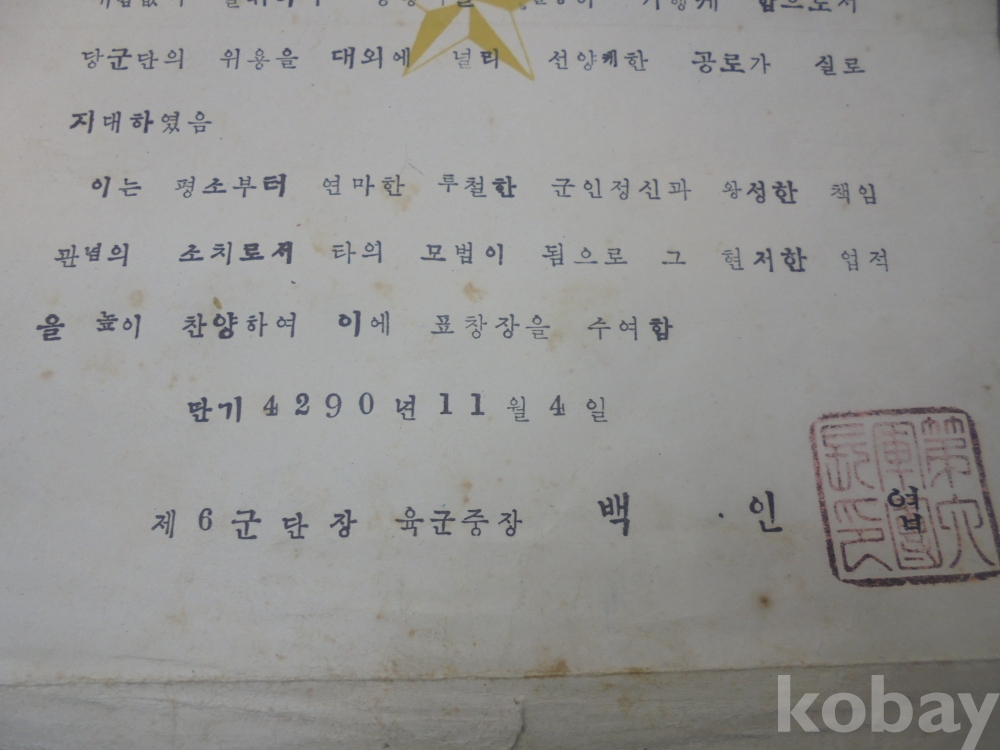 당군단의 위용을 대외에 널리 선양케한 공로가 실로
지대하였음
이는 평소부터 연마한 투철한 군인정신과 왕성한 책임
관념의 소치로서 타의 모범이 됨으로 그 현저한 업적
을 높이 찬양하여 이에 표창장을 수여함
단기 4290년 11월 4일
제6군단장 육군중장 백 인 엽
第六軍團長印
kobay